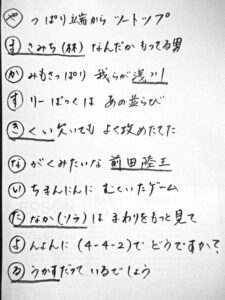 やっぱり立端から ツートップ
まさみち(林)なんだか もってる男
かみもさっぱり 我らが浅川
すりーばっくは あの並らび
きくい欠いても よく攻めたてた
ながくみたいな 前田陸王
いちまんにんに むくいたゲーム
たなか(ソラ)は まわりをもっと見て
よんよんに(4-4-2)で どうですかて?
るうかすだって いるでしょう